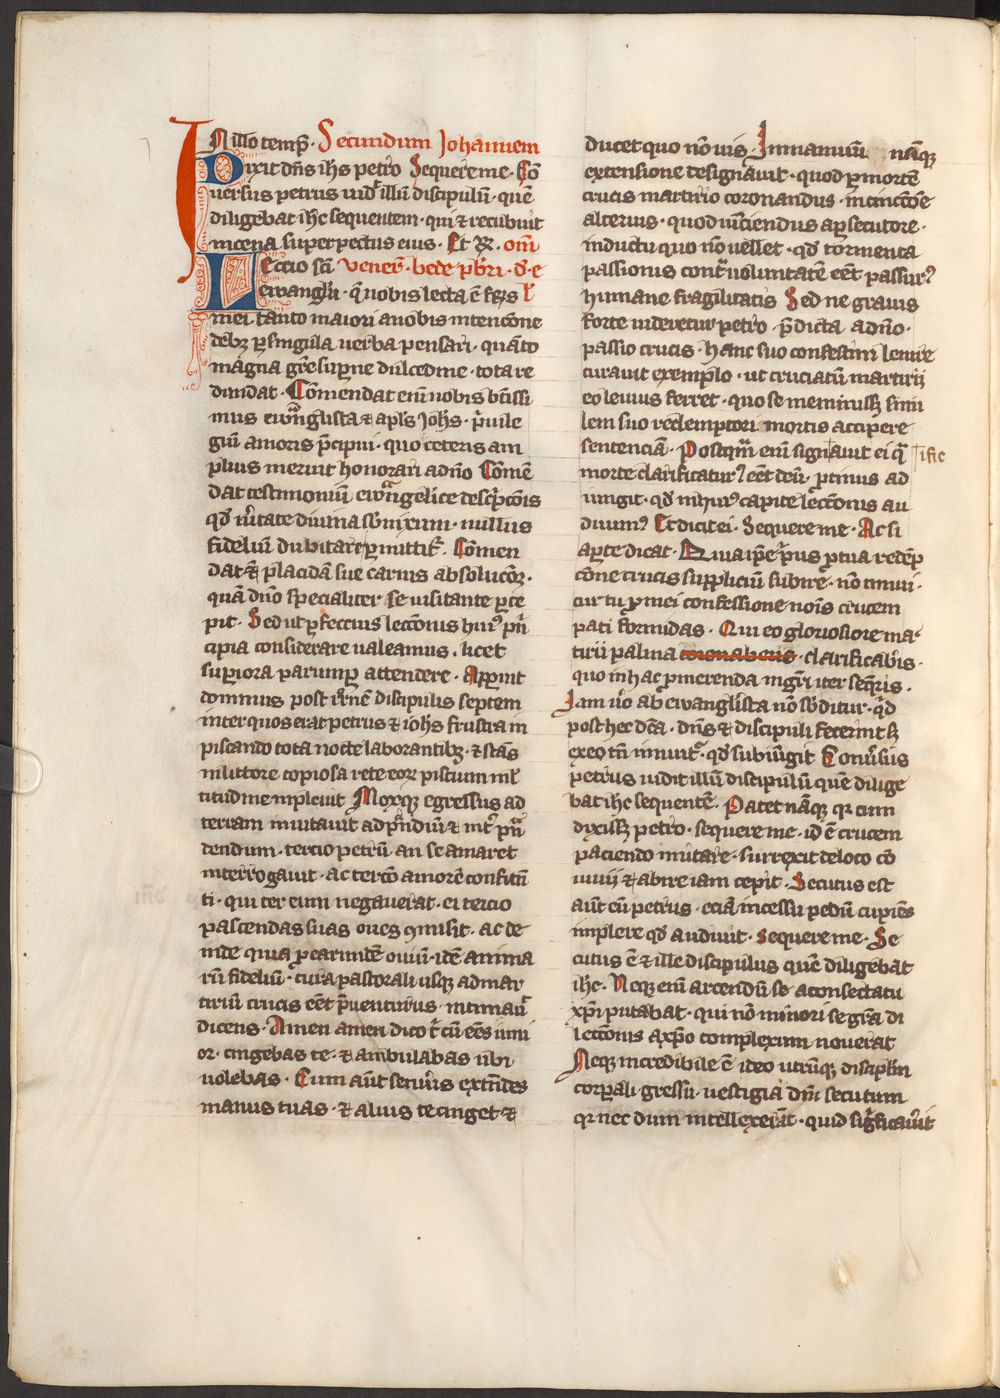 IN illo temp̅. Secundum Johannem
Dixit dn̅s ih̅s petro Sequere me. Co̅
uersus petrus uidꝫ illu̅ discipulu̅. que̅
diligebat ih̅c sequentem. qui ⁊ recubuit
in cena super pectus eius. Et R. om̅
Leccio sc̅i Vener̅. bede p̅b̅ri. d. e
ewangl̅ii. q̅ nobis lecta e̅ fr̅s
mei. tanto maiori a nobis intenc̅one
debꝫ ꝑ singula uerba pensari. qua̅to
magna gr̅e sup̅ne dulcedine. tota re
dundat. Co̅mendat eni̅ nobis b̅tissi
mus ewa̅ngl̅ista ⁊ apl̅s Joh̅s. p̅uile
giu̅ amoris p̅cipui. quo ceteris am
plius meruit honorari a dn̅o Co̅me̅
dat testimoniu̅ ewa̅ngelice desc̅pc̅ois
qd̅ u̅itate diuina sb̅nixum. nullus
fideliu̅ dubitare ꝑmittit̅. Co̅men
dat ⁊ placida̅ sue carnis absoluc̅oꝫ.
qua̅ dn̅o specialiter se uisitante ꝑce
pit. Sed ut ꝑfeccius lecc̅onis hui᷒ p̅n
cipia considerare ualeamus. licet
superiora parumꝑ attendere. Apparuit
dominus post r̅r̅ne̅ discipulis septem
inter quos erat petrus ⁊ ioh̅s frustra in
piscando tota nocte laborantibꝫ. ⁊ sta̅s
in littore copiosa rete eoꝝ pisciu̅ ml̅
titudine impleuit Moxqꝫ egressus ad
terram inuitauit ad p̅ndiu̅ ⁊ int̅ p̅n
dendum. tercio petru̅ an se amaret
interrogauit. ac terc̅o amore̅ confiten̅
ti. qui ter eum negauerat. ei tercio
pascendas suas oues ꝯmisit. ac de
inde quia ꝓ earunde̅ ouiu̅. ide̅ anima
ru̅ fideliu̅. cura pastorali usqꝫ ad mar
tiriu̅ crucis e̅et p̅uenturus. intimau̅
dicens. Amen amen dico t̅ cu̅ e̅es iuni
or. cingebas te. ⁊ ambulabas ubi
uolebas. Cum aut̅ senu̅is exten̅des
manus tuas. ⁊ alius te cinget ⁊
ducet quo no̅ uis. In manuu̅ na̅qꝫ
extensione designauit. quod ꝑ morte̅
crucis martirio coronandus. in cinctc̅oe
alterius. quod uinciendus a ꝑsecutore.
in ductu quo no̅ uellet. qd̅ tormenta
passionis cont̅ uoluntate̅ e̅et passur᷒
humane fragilitatis Sed ne grauis
forte uideretur petro. p̅dicta a dn̅o.
passio crucis. hanc suo confestim leuire
curauit exemplo. ut cruciatu̅ martirij
eo leuius ferret. quo se meminissꝫ simi
lem suo redemptori mortis accipere
sentencia̅. Postq̅m eni̅ signauit ei q̅ ific
morte clarificatur᷒ e̅et deu̅. ꝓtinus ad
iungit. qd̅ in hui᷒ capite lecc̅onis au
diuim᷒ Et dicit ei. Sequere me. Ac si
aꝑte dicat. Quia ip̅e p̅us ꝓ tua redemp
c̅one crucis suppliciu̅ subire. no̅ timui.
cur tu ꝓ mei confessione no̅is crucem
pati formidas. Qui eo gloriosiore ma
tirii palma coronaberis. clarificabis.
quo in hac ꝓmerenda mgr̅i iter seq̅ris.
Iam u̅o ab ewangl̅ista no̅ sb̅ditur. qd̅
post hec d̅ca. dn̅s ⁊ discipuli fecerint sꝫ
ex eo tn̅ innuit̅. qd̅ subiu̅git Conu̅sus
petrus uidit illu̅ discipulu̅ que̅ dilige
bat ih̅c sequente̅. Patet na̅qꝫ qꝛ cum
dixissꝫ petro. sequere me. id e̅ crucem
paciendo imitare. surrexit de loco co̅
uiuij ⁊ abire iam cepit. Secutus est
aut̅ eu̅ petrus. ecia̅ incessu pedu̅ cupie̅s
implere qd̅ audiuit. Sequere me. Se
cutus e̅ ⁊ ille discipulus que̅ diligebat
ih̅c. Neqꝫ eni̅ arcendu̅ se a consectatu
xp̅i putabat. qui no̅ minori se gr̅a di
lecc̅onis a xp̅o complexum nouerat
Neqꝫ incredibile e̅ ideo utru̅qꝫ discipl̅m
corꝑali gressu. uestigia dn̅i secutum
qꝛ nec dum intellexera̅t. quid sig̅ficauit